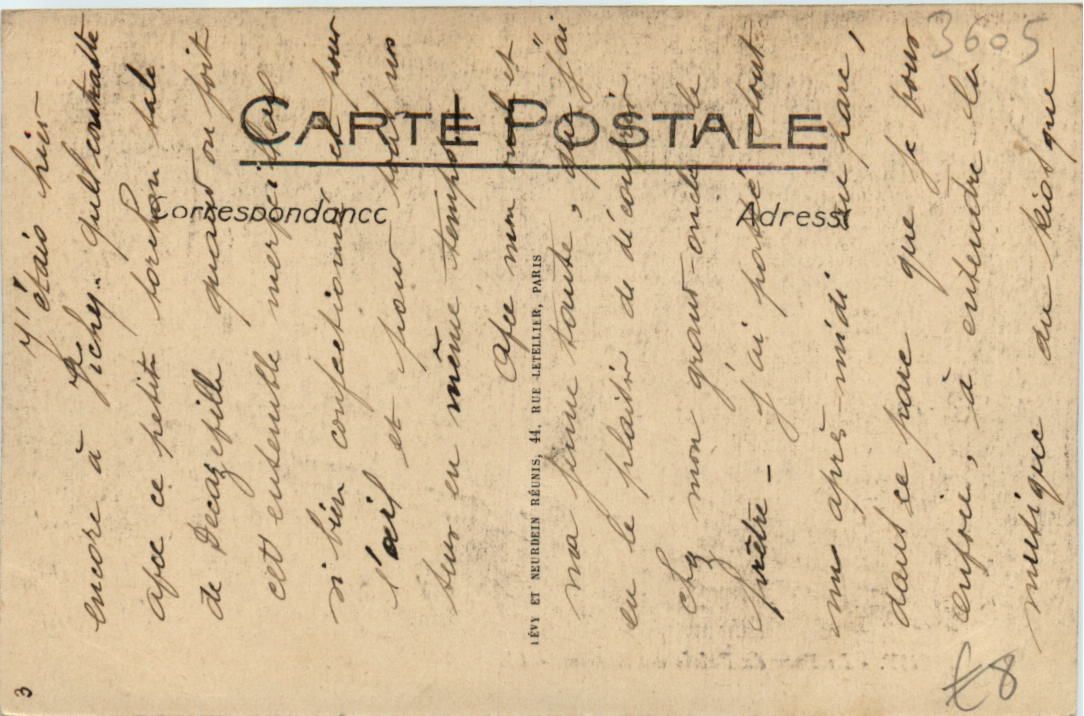 CARTE POSTALE
Correspondance
Adresse
LÉVY ET NEURDEIN RÉUNIS, 44, RUE LETELLIER, PARIS
3605
£8
3
J'étais hier
encore à Vichy. quel contraste
avec ce petit torchon sale
de Decazeville quand on voit
cet ensemble merveilleux
si bien confectionné et pour
l'œil et pour tout nos
sens en même temps
avec mon oncle et
ma jeune tante, que j'ai
eu le plaisir de découvrir
chez mon grand-oncle le
prêtre - j'ai passé tout
un après-midi au parc,
dans ce parc que je vous
envoie, à entendre la
musique du kiosque